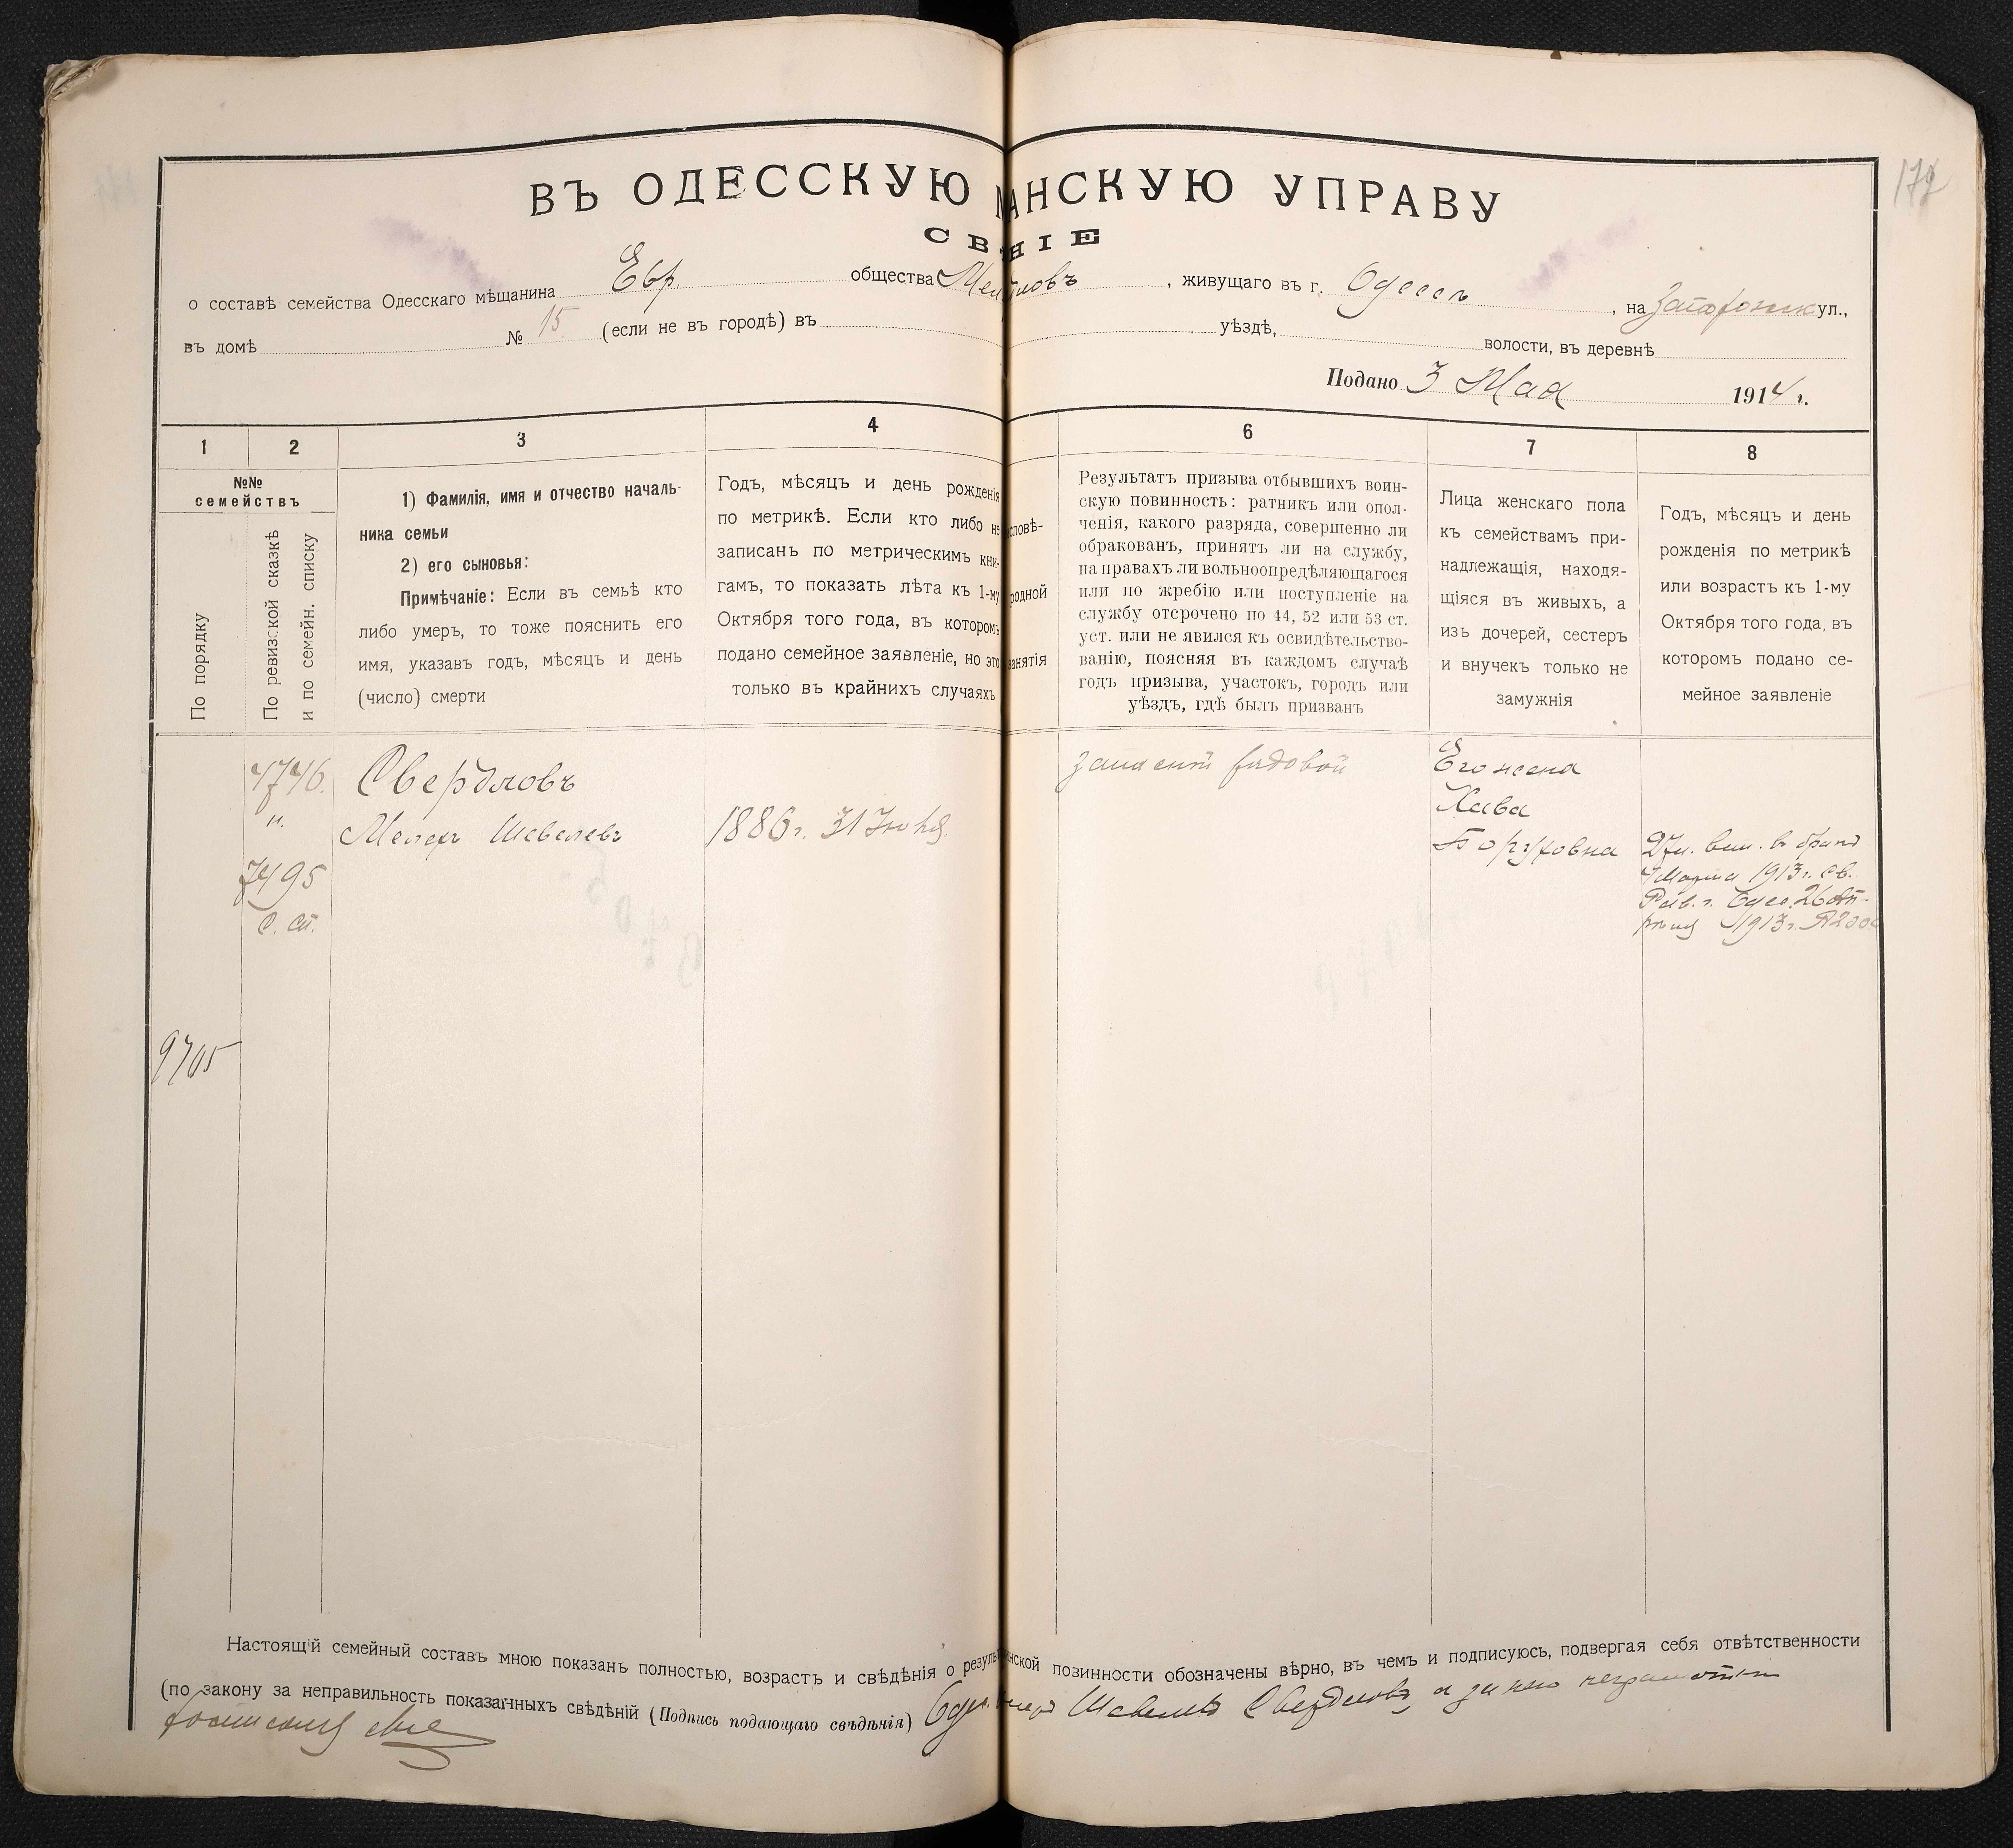 172
ВЪ ОДЕССКУЮ М АНСКУЮ УПРАВУ
СВ НІЕ
о составѣ семейства Одесскаго мѣщанина Евр. общества , живущаго въ г. Одессѣ , на ул.,
въ домѣ № 15 (если не въ городѣ) въ уѣздѣ, волости, въ деревнѣ
Подано 3 Мая 1914 г.
1 2 3 4 6 7 8
№№
семействъ
По порядку
По ревизской сказкѣ
и по семейн. списку
1) Фамилія, имя и отчество началь-
ника семьи
2) его сыновья:
Примѣчаніе: Если въ семьѣ кто
либо умеръ, то тоже пояснить его
имя, указавъ годъ, мѣсяцъ и день
(число) смерти
Годъ, мѣсяцъ и день рожденія
по метрикѣ. Если кто либо не
записанъ по метрическимъ кни-
гамъ, то показать лѣта къ 1-му
Октября того года, въ которомъ
подано семейное заявленіе, но это
только въ крайнихъ случаяхъ
сповѣ-
родной
занятія
Результатъ призыва отбывшихъ воин-
скую повинность: ратникъ или опол-
ченія, какого разряда, совершенно ли
обракованъ, принятъ ли на службу,
на правахъ ли вольноопредѣляющагося
или по жребію или поступленіе на
службу отсрочено по 44, 52 или 53 ст.
уст. или не явился къ освидѣтельство-
ванію, поясняя въ каждомъ случаѣ
годъ призыва, участокъ, городъ или
уѣздъ, гдѣ былъ призванъ
Лица женскаго пола
къ семействамъ при-
надлежащія, находя-
щіяся въ живыхъ, а
изъ дочерей, сестеръ
и внучекъ только не
замужнія
Годъ, мѣсяцъ и день
рожденія по метрикѣ
или возрастъ къ 1-му
Октября того года, въ
которомъ подано се-
мейное заявленіе
4746.
и.
7495
с. сп.
9705
Свердловъ
Мейеръ Шевелевъ
1886 г. 31
рядовой
Его жена
Хава
Боруховна
27 л. в бракъ
Марта 1913 г. св.
Рав. г. Одес. 26
1913 г.
Настоящій семейный составъ мною показанъ полностью, возрастъ и свѣдѣнія о резуль инской повинности обозначены вѣрно, въ чемъ и подписуюсь, подвергая себя отвѣтственности
(по закону за неправильность показанныхъ свѣдѣній (Подпись подающаго свѣдѣнія) Шевелев Свердловъ, а за него неграмотн